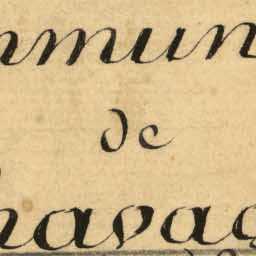 mmun
de
hava